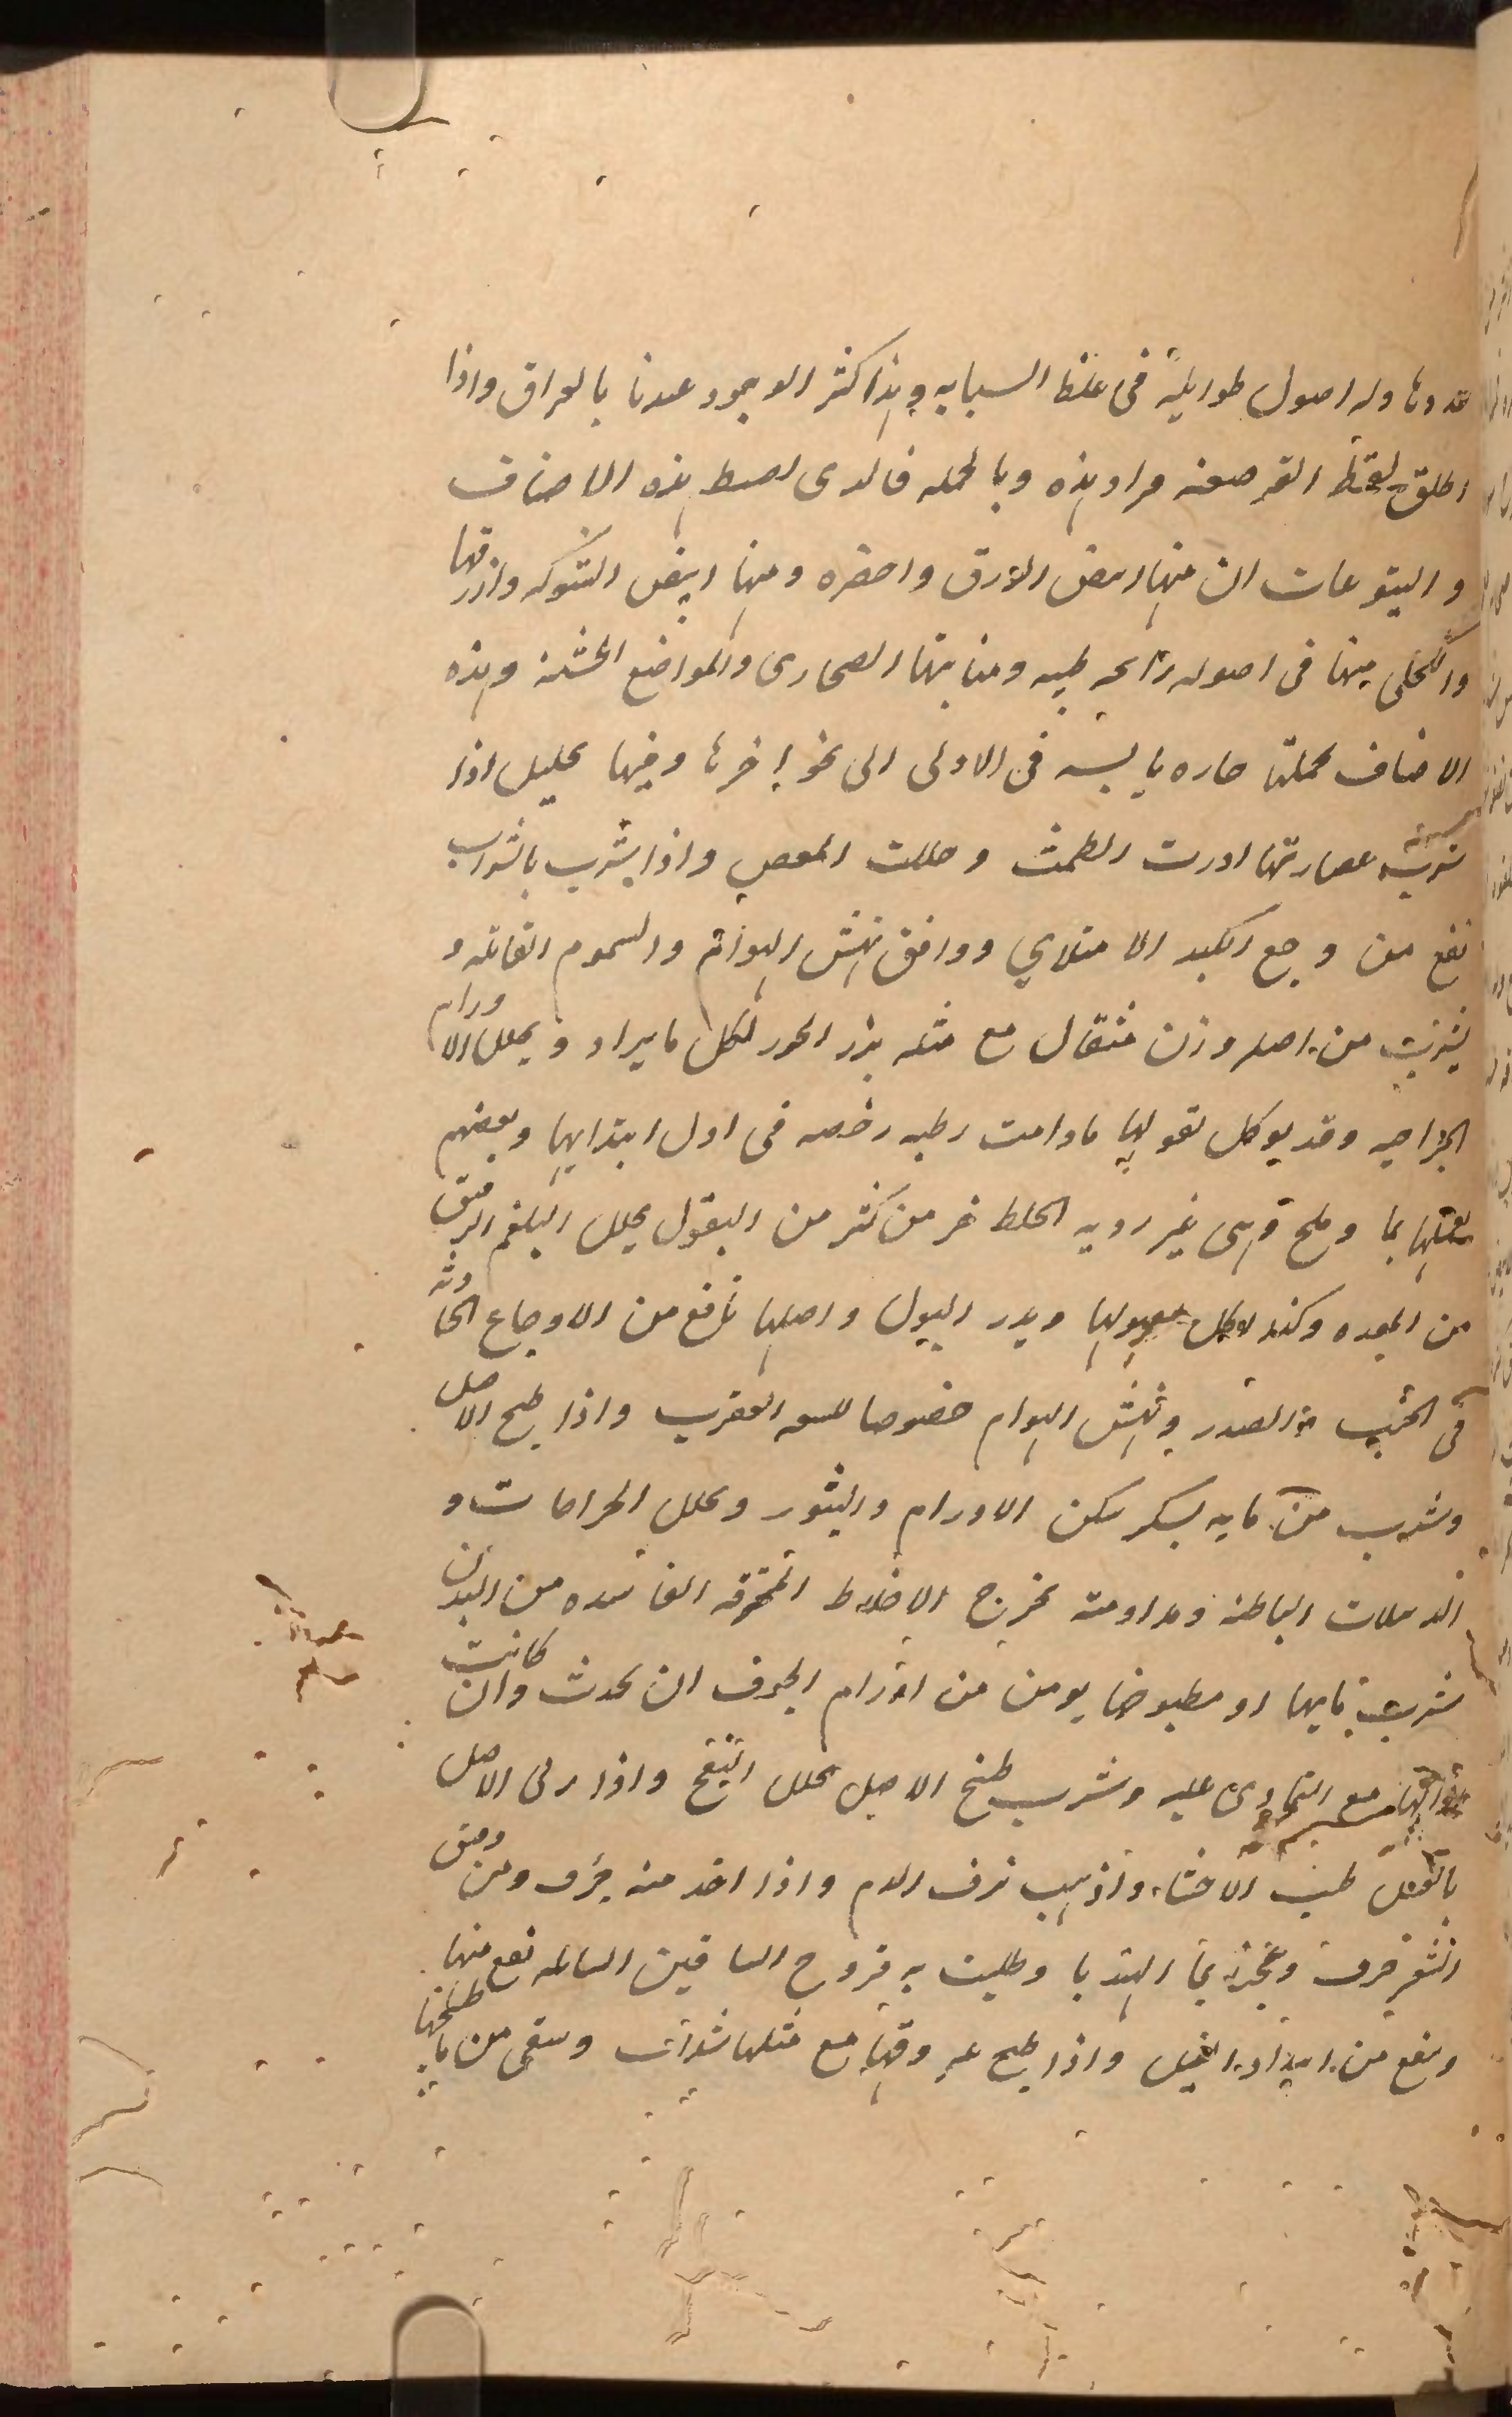 عقدونا وله اصول طوايلة فى غلظ السبابه وهذا كثر الوجود عندنا بالعراق واذا
اطلق لفظ القرصعنه مراد هذه وبالجمله فالدى لضبط هذه الاصناف
و اليتوعات ان منها ابيض الورق واخضره ومنها ابيض الشوكه وازرقها
والكحلى منها فى اصوله رائحه طيبه ومنابتها الصحارى والمواضع الخشنه وهذه
الاصناف بجملتها حاره يابسه فى الاولى الى نحو اخرها وفيها تحليل اذا
شربت عصارتها ادرت الطمث وحللت المغص واذا شرب بالشراب
نفع من وجع الكبد الامتلاي ووافق نهش الهوام والسموم القاتله و
يشرب من اصله وزن مثقال مع مثله بزر الجزر لكل ما يراد ويحلل الاورام
الخراجيه وقد يوكل بقولها مادامت رطبه رخصه فى اول ابتدايها وبعضهم
بما وملح وهى غير رديه الخلط خير من كثير من البقول يحلل البلغم الرقيق
من المعده وكذا وتدر البول واصلها نافع من الاوجاع الحادثه
فى الجنب والصدر ونهش الهوام خصوصا للسعه العقرب واذا طبخ الاصل
وشرب من مايه بسكر سكن الاورام والبثور وحلل الخراجات و
الدبيلات الباطنه ومداومته تخرج الاخلاط المحترقه الفاسده من البدن
شرب مايها او مطبوخها يومن من اورام الجوف ان تحدث وان كانت
مع التمادى عليه وشرب طبخ الاصل تحلل النفخ واذا ربى الاصل
بالعسل طيب الاحشاء واذهب نزف الدم واذا اخذ منه جزء ومن دقيق
الشعير جزء وعجن بما الهندبا وطليت به قروح الساقين السايله نفع منها
وينفع من ابتداء الفيل واذا طبخ عروقها مع مثلها شراب وسقى من ما طبخها